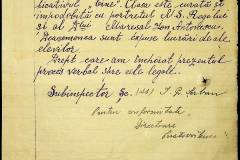 dicatorul "bine". Clasa este curată și
împodobită cu portretul M.S. Regelui
și al D-lui Mareșal Ion Antonescu.
Deasemenea sunt expuse lucrări de ale
elevilor.
Drept care am încheiat prezentul
proces verbal spre cele legale.
Subinspector, ss.
Pentru conformitate,
Directoare